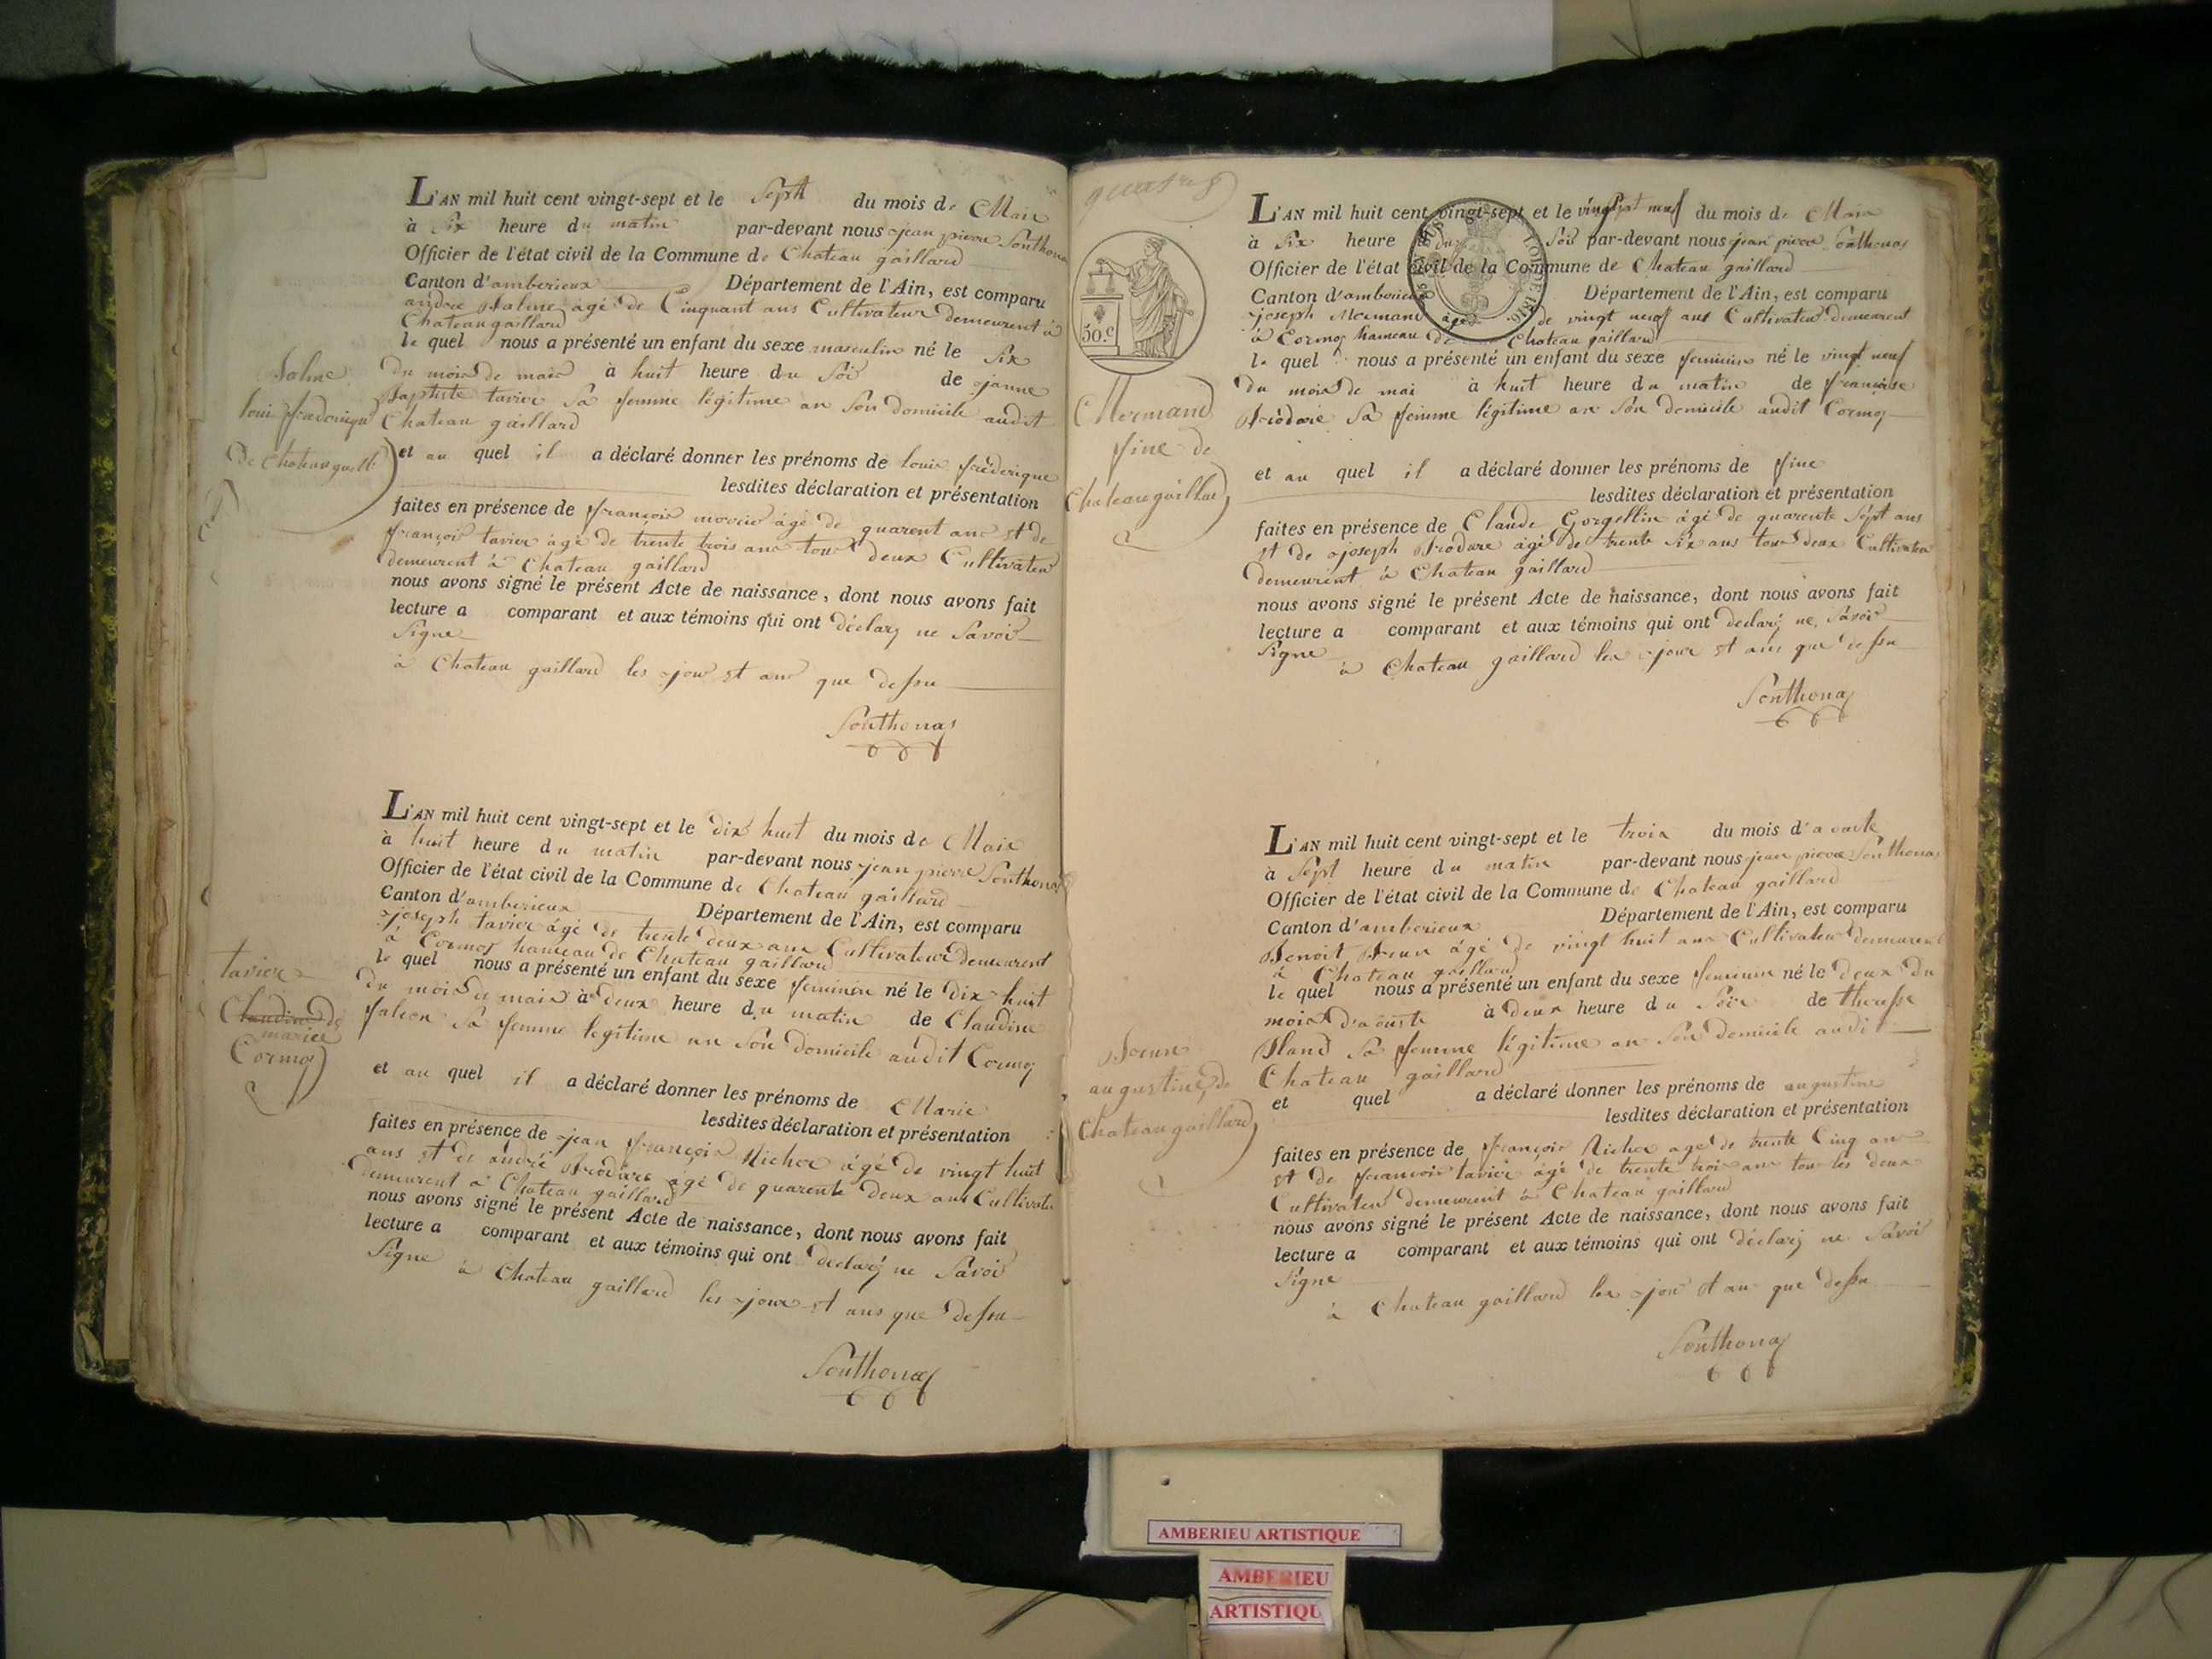 L'AN mil huit cent vingt-sept et le Sept du mois de Mai
à Six heure du matin par-devant nous jean pierre Sonthonas
Officier de l'état civil de la Commune de Chateau gaillard
Canton d'amberieux Département de l'Ain, est comparu
andré Salme agé de Cinquant ans Cultivateur demeurent à
Chateau gaillard
le quel nous a présenté un enfant du sexe masculin né le Six
du mois de mai à huit heure du Soir de jeanne
Baptiste tavier Sa femme légitime an Son domicile audit
Chateau gaillard
et au quel il a déclaré donner les prénoms de louis frederique
lesdites déclaration et présentation
faites en présence de françois âgé de quarent ans et de
françois tavier âgé de trente trois ans tous deux Cultivateur
demeurent à Chateau gaillard
nous avons signé le présent Acte de naissance, dont nous avons fait
lecture a comparant et aux témoins qui ont déclarez ne Savoir
Signe
à Chateau gaillard les jour et ans que dessu
Sonthonas
Salme
de
L'AN mil huit cent vingt-sept et le dix huit du mois de Mai
à huit heure du matin par-devant nous jean pierre Sonthonas
Officier de l'état civil de la Commune de Chateau gaillard
Canton d'amberieux Département de l'Ain, est comparu
joseph tavier âgé de trente deux ans Cultivateur demeurent
à Cormoz hameau de Chateau gaillard
le quel nous a présenté un enfant du sexe feminin né le dix huit
du mois de mai à deux heure du matin de Claudine
falcon Sa femme legitime an Son domicile audit Cormoz
et au quel il a déclaré donner les prénoms de Marie
lesdites déclaration et présentation
faites en présence de jean françois Richer âgé de vingt huit
ans et de andré Brodare agé de quarente deux ans Cultivateur
demeurent à Chateau gaillard
nous avons signé le présent Acte de naissance, dont nous avons fait
lecture a comparant et aux témoins qui ont declarez ne Savoir
Signe à Chateau gaillard les jour et ans que dessu
Sonthonas
tavier
Claudine de
marie
Cormoz
50.c
LOI DE 1816
L'AN mil huit cent vingt-sept et le vingt neuf du mois de Mai
à Six heure du Soir par-devant nous jean pierre Sonthonas
Officier de l'état civil de la Commune de Chateau gaillard
Canton d'amberieux Département de l'Ain, est comparu
joseph Mermand âgé de vingt neuf ans Cultivateur demeurent
à Cormoz hameau de Chateau gaillard
le quel nous a présenté un enfant du sexe feminin né le vingt neuf
du mois de mai à huit heure du matin de francoise
Brodare Sa femme légitime an Son domicile audit Cormoz
et au quel il a déclaré donner les prénoms de fine
lesdites déclaration et présentation
faites en présence de Claude Gorgellin âgé de quarente Sept ans
et de joseph Brodare agé de trente Six ans tous deux Cultivateur
demeurent à Chateau gaillard
nous avons signé le présent Acte de naissance, dont nous avons fait
lecture a comparant et aux témoins qui ont declarez ne Savoir
Signe à Chateau gaillard les jour et ans que dessu
Sonthonas
Mermand
fine de
Chateau gaillard
L'AN mil huit cent vingt-sept et le trois du mois d'aoucte
à Sept heure du matin par-devant nous jean pierre Sonthonas
Officier de l'état civil de la Commune de Chateau gaillard
Canton d'amberieux Département de l'Ain, est comparu
Benoit âgé de vingt huit ans Cultivateur demeurent
à Chateau gaillard
le quel nous a présenté un enfant du sexe feminin né le deux du
mois d'aouste à deux heure du Soir de theresse
Bland Sa femme légitime an Son domicile audit
Chateau gaillard
et quel a déclaré donner les prénoms de augustine
lesdites déclaration et présentation
faites en présence de françois Richer agé de trente Cinq ans
et de francois tavier âgé de trente trois ans tous les deux
Cultivateur demeurent à Chateau gaillard
nous avons signé le présent Acte de naissance, dont nous avons fait
lecture a comparant et aux témoins qui ont déclarez ne Savoir
Signe
à Chateau gaillard les jour et ans que dessu
Sonthonas
augustine de
Chateau gaillard
AMBERIEU ARTISTIQUE
AMBERIEU
ARTISTIQU